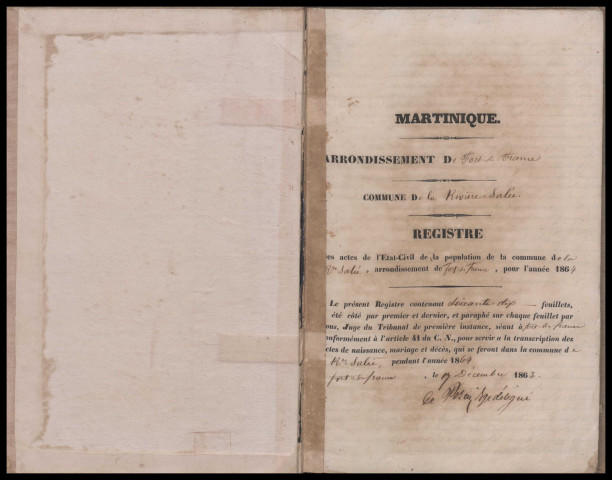 MARTINIQUE.
ARRONDISSEMENT De Fort de France
COMMUNE De la Rivière-Salée
REGISTRE
des actes de l'Etat-Civil de la population de la commune de la
Rre Salée, arrondissement de fort de france, pour l'année 1864
Le présent Registre contenant soixante dix feuillets,
été côté par premier et dernier, et paraphé sur chaque feuillet par
ous, Juge du Tribunal de première instance, séant à fort-de-france
onformément à l'article 41 du C. N., pour servir à la transcription des
ctes de naissance, mariage et décès, qui se feront dans la commune de
Rre Salée, pendant l'année 1864
fort-de-france, le Décembre 1863.